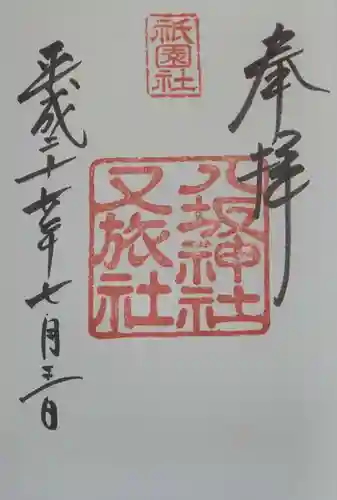 奉拝
祇園社
八坂神社
又旅社
平成二十七年七月日